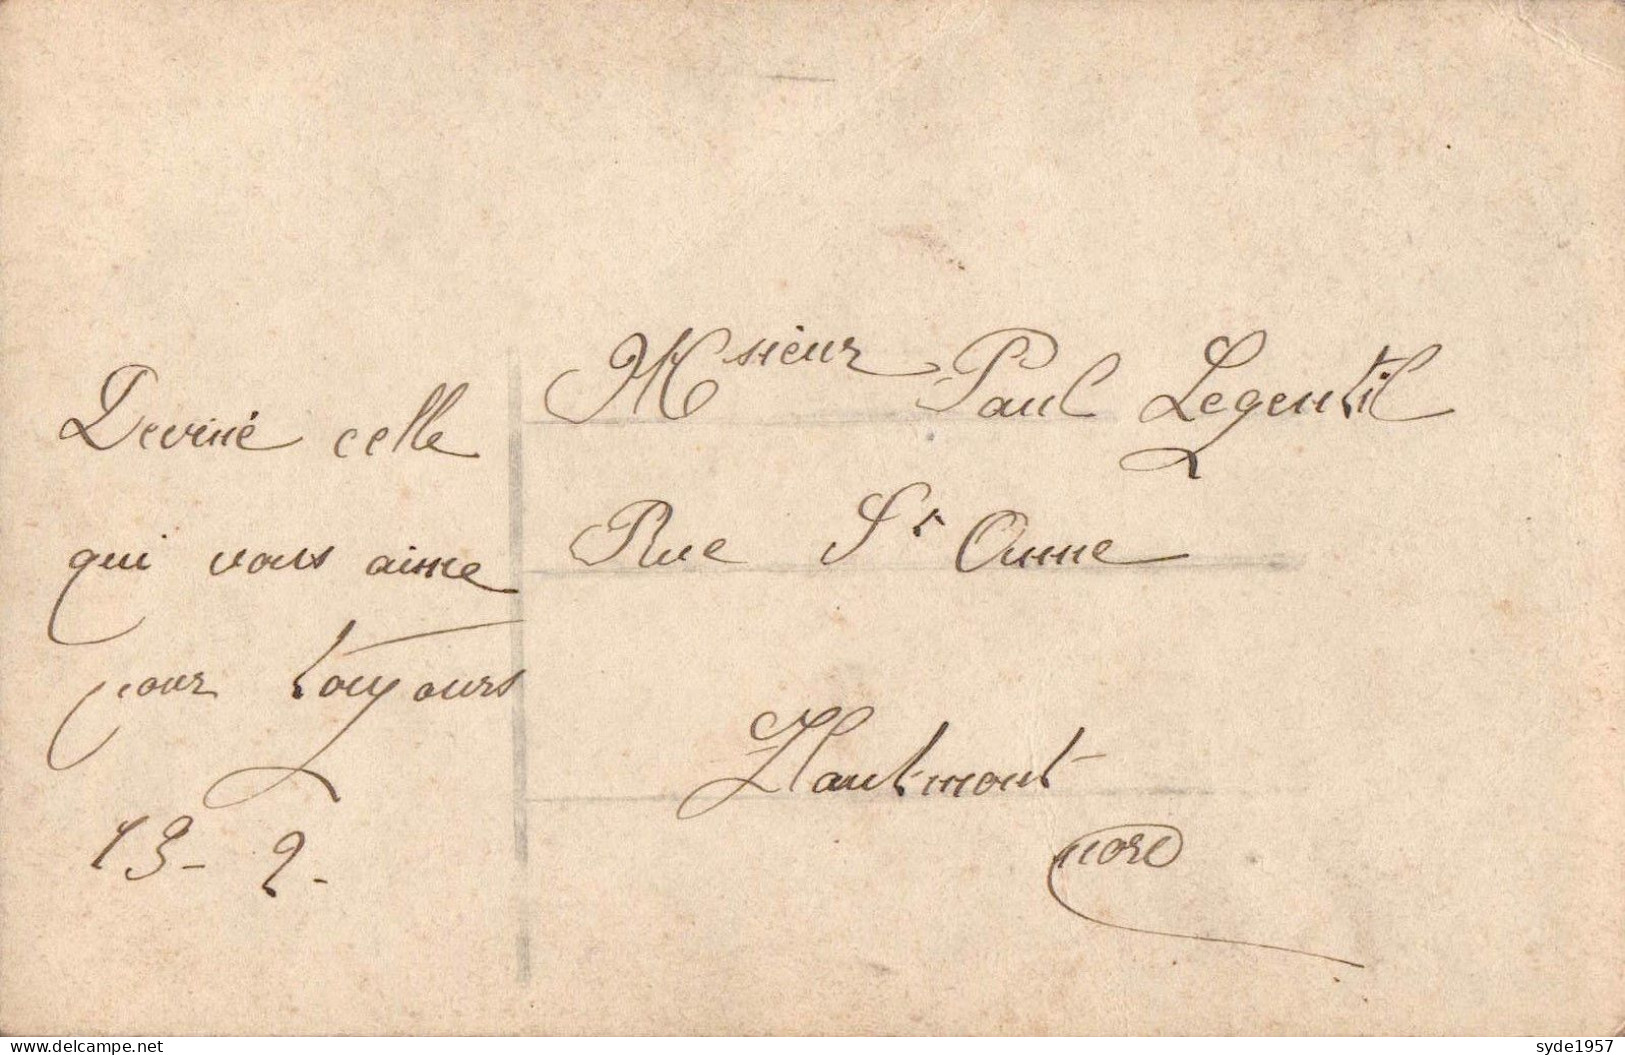 Deviné celle
qui vous aime
pour toujours
13 - 2 -
Msieur Paul Legentil
Rue St Anne
Hautmont
nord
www.delcampe.net
syde1957